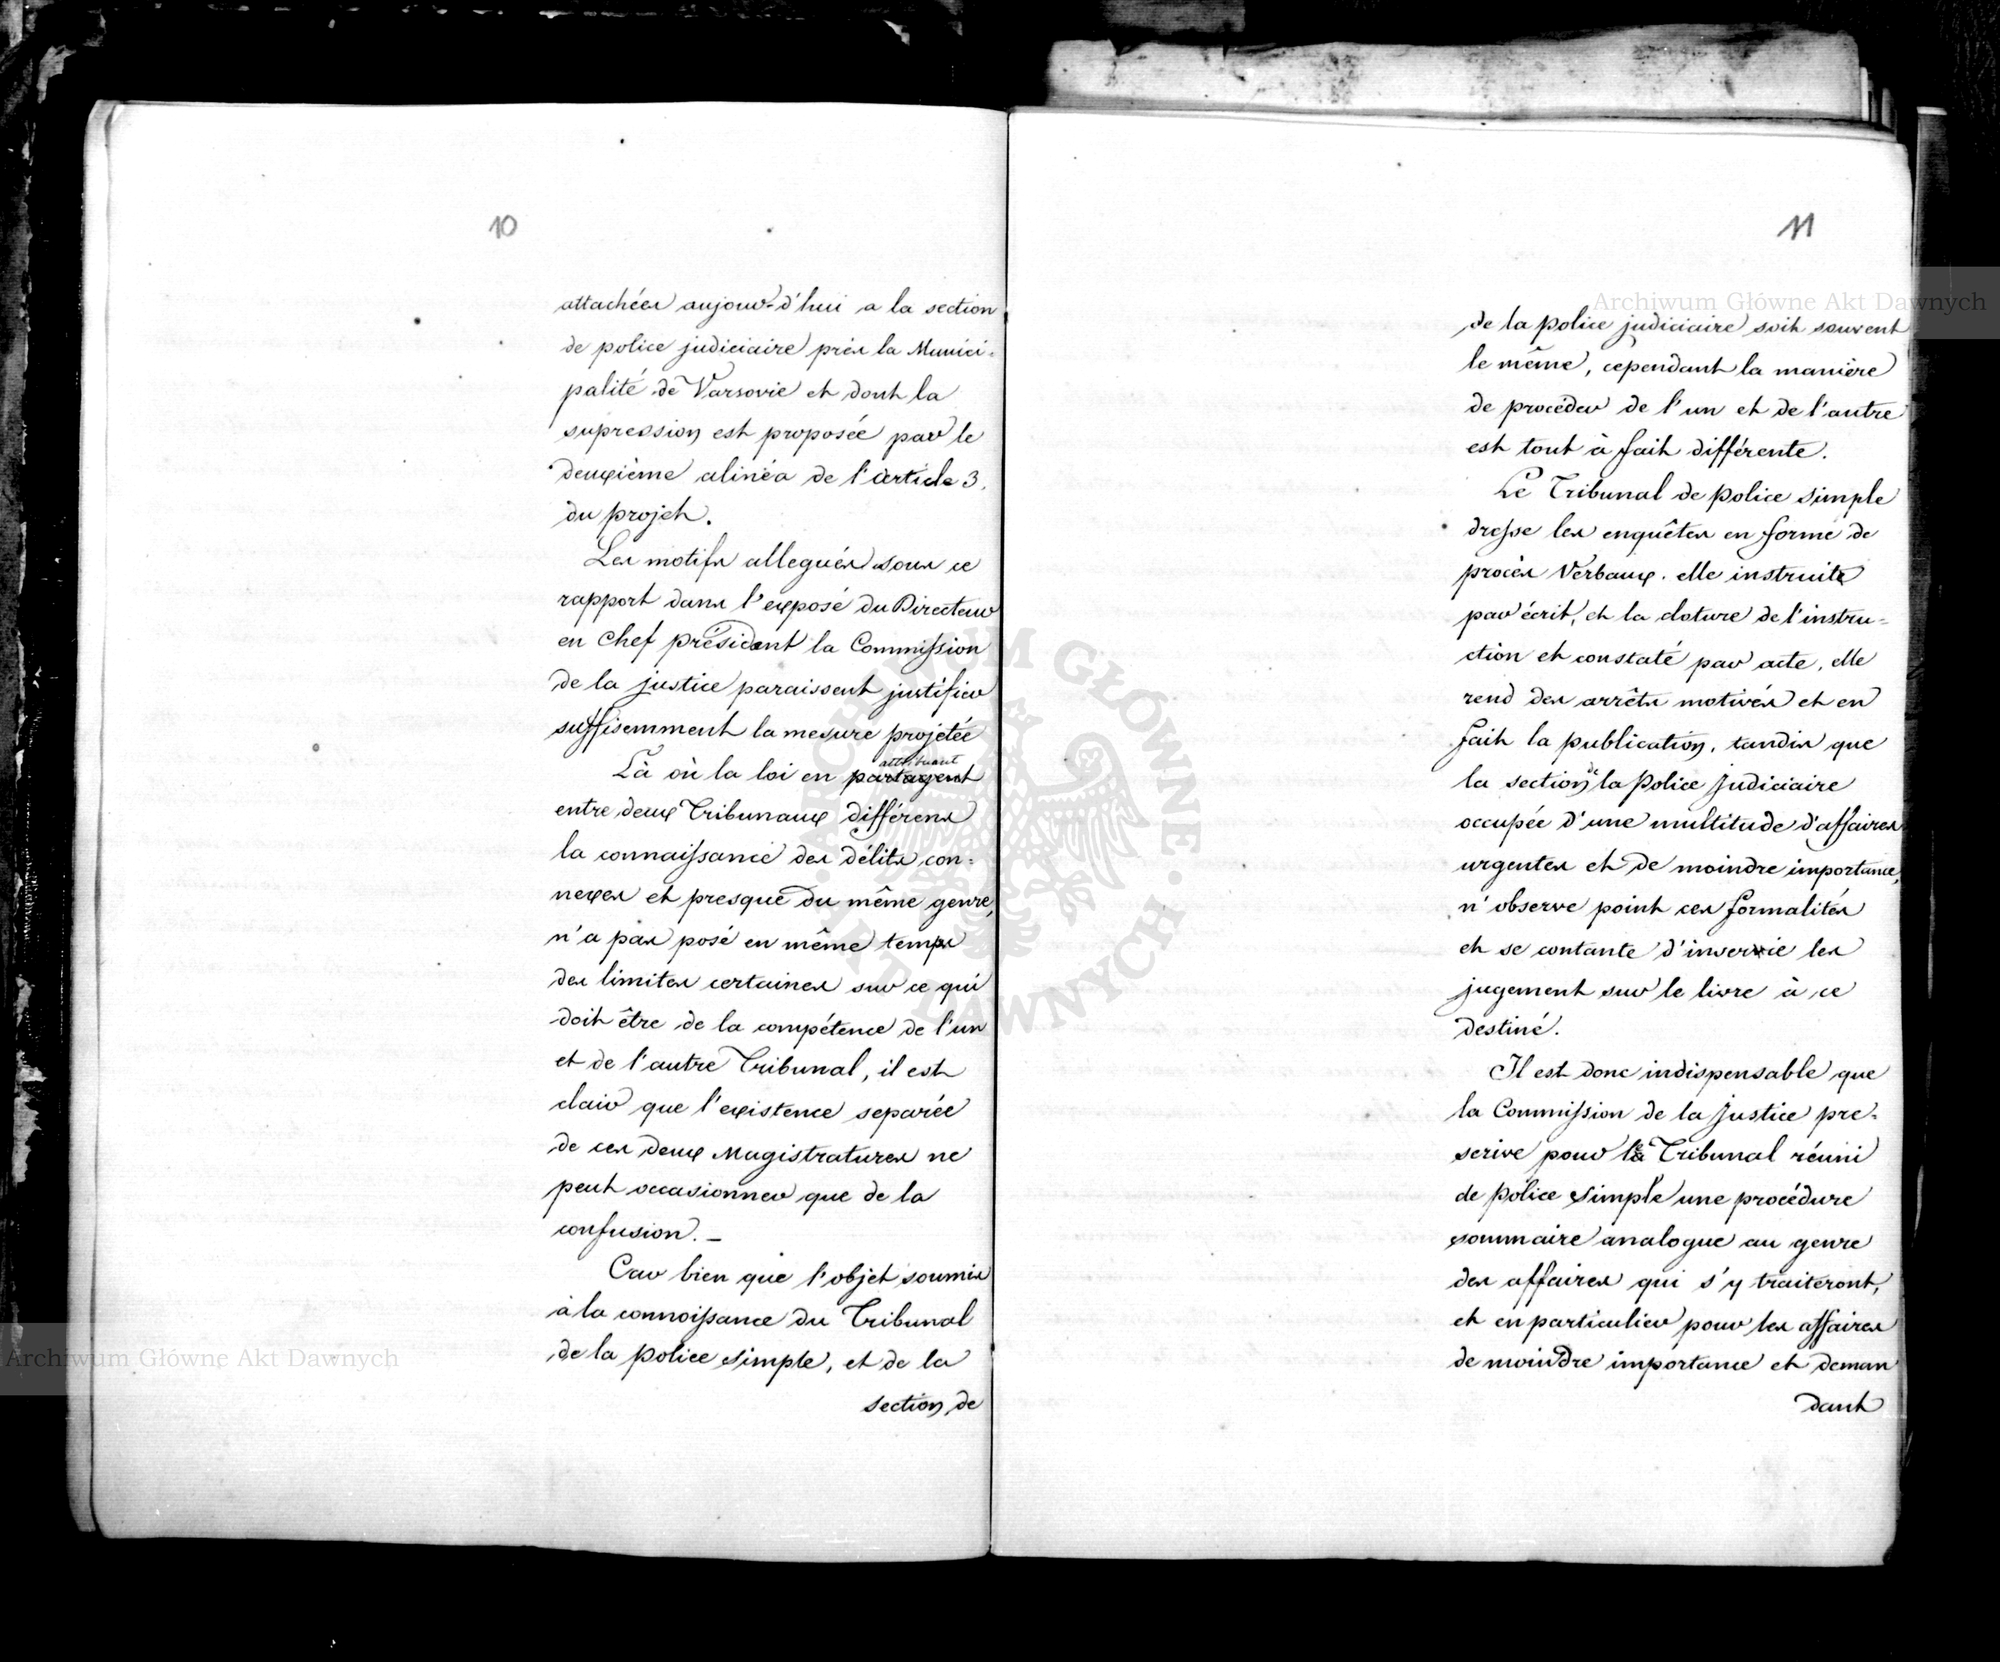 10
attachées aujour-d'hui a la section
de police judiciaire près la Munici=
palité de Varsovie et dont la
supression est proposée par le
deuxième alinéa de l'article 3.
du projet.
Les motifs allegués sous ce
rapport dans l'exposé du Directeur
en Chef président la Commission
de la justice paraissent justifier
suffisemment la mesure projetée
attribuant
Là où la loi en partagent
entre deux Tribunaux différens
la connaissance des délits con=
nexes et presque du même genre,
n'a pas posé en même temps
des limites certaines sur ce qui
doit être de la compétence de l'un
et de l'autre Tribunal, il est
clair que l'existence separée
de ces deux Magistratures ne
peut occasionner que de la
confusion. _
Car bien que l'objet soumis
à la connoissance du Tribunal
de la police simple, et de la
section de
11
de la police judiciaire soit souvent
le même, cependant la manière
de procéder de l'un et de l'autre
est tout à fait différente.
Le Tribunal de police simple
dresse les enquêtes en forme de
procès Verbaux. elle instruit
par écrit, et la cloture de l'instru=
ction et constaté par acte, elle
rend des arrêts motivés et en
fait la publication, tandis que
la section de la Police Judiciaire
occupée d'une multitude d'affaires
urgentes et de moindre importance,
n'observe point ces formalités
et se contante d'inserie les
jugement sur le livre à ce
destiné.
Il est donc indispensable que
la Commission de la Justice pre=
scrive pour le Tribunal réuni
de police simple une procédure
sommaire analogue au genre
des affaires qui s'y traiteront,
et en particulier pour les affaires
de moindre importance et deman
dant
Archiwum Główne Akt Dawnych
Archiwum Główne Akt Dawnych
ARCHIWUM GŁÓWNE · AKT DAWNYCH ·